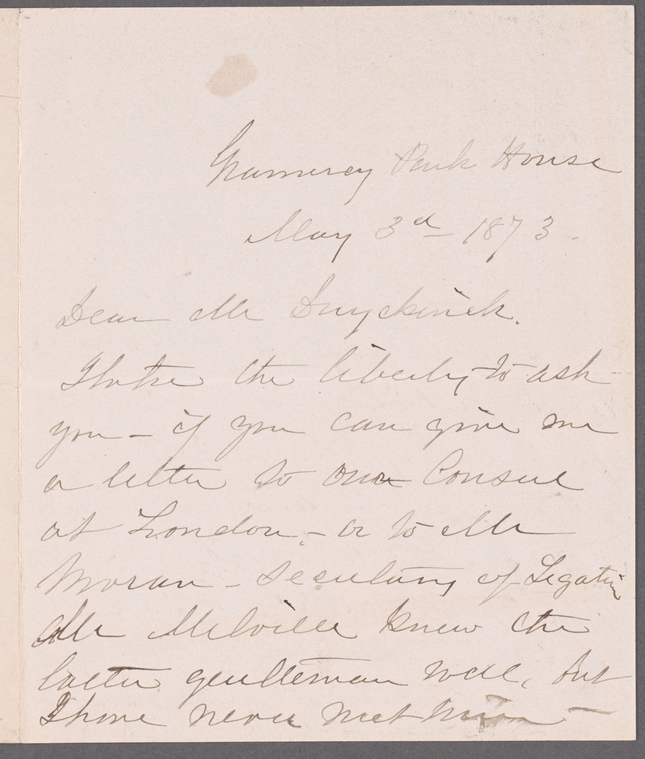 Gramercy Park House
May 3d 1873.
Dear Mr Duyckinck.
I take the liberty to ask
you – if you can give me
a letter to our Consul
at London, – or to Mr
Moran – Secretary of Legation
Mr Melville knew the
latter gentleman well, but
I have never met him –